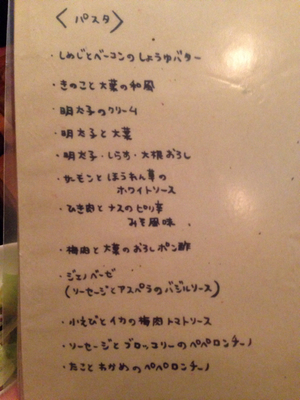 〈パスタ〉
・しめじとベーコンのしょうゆバター
・きのこと大葉の和風
・明太子のクリーム
・明太子と大葉
・明太子・しらす・大根おろし
・サーモンとほうれん草の
ホワイトソース
・ひき肉とナスのピリ辛
みそ風味
・梅肉と大葉のおろしポン酢
・ジェノベーゼ
(ソーセージとアスパラのバジルソース)
・小えびとイカの梅肉トマトソース
・ソーセージとブロッコリーのペペロンチーノ
・たことわかめのペペロンチーノ